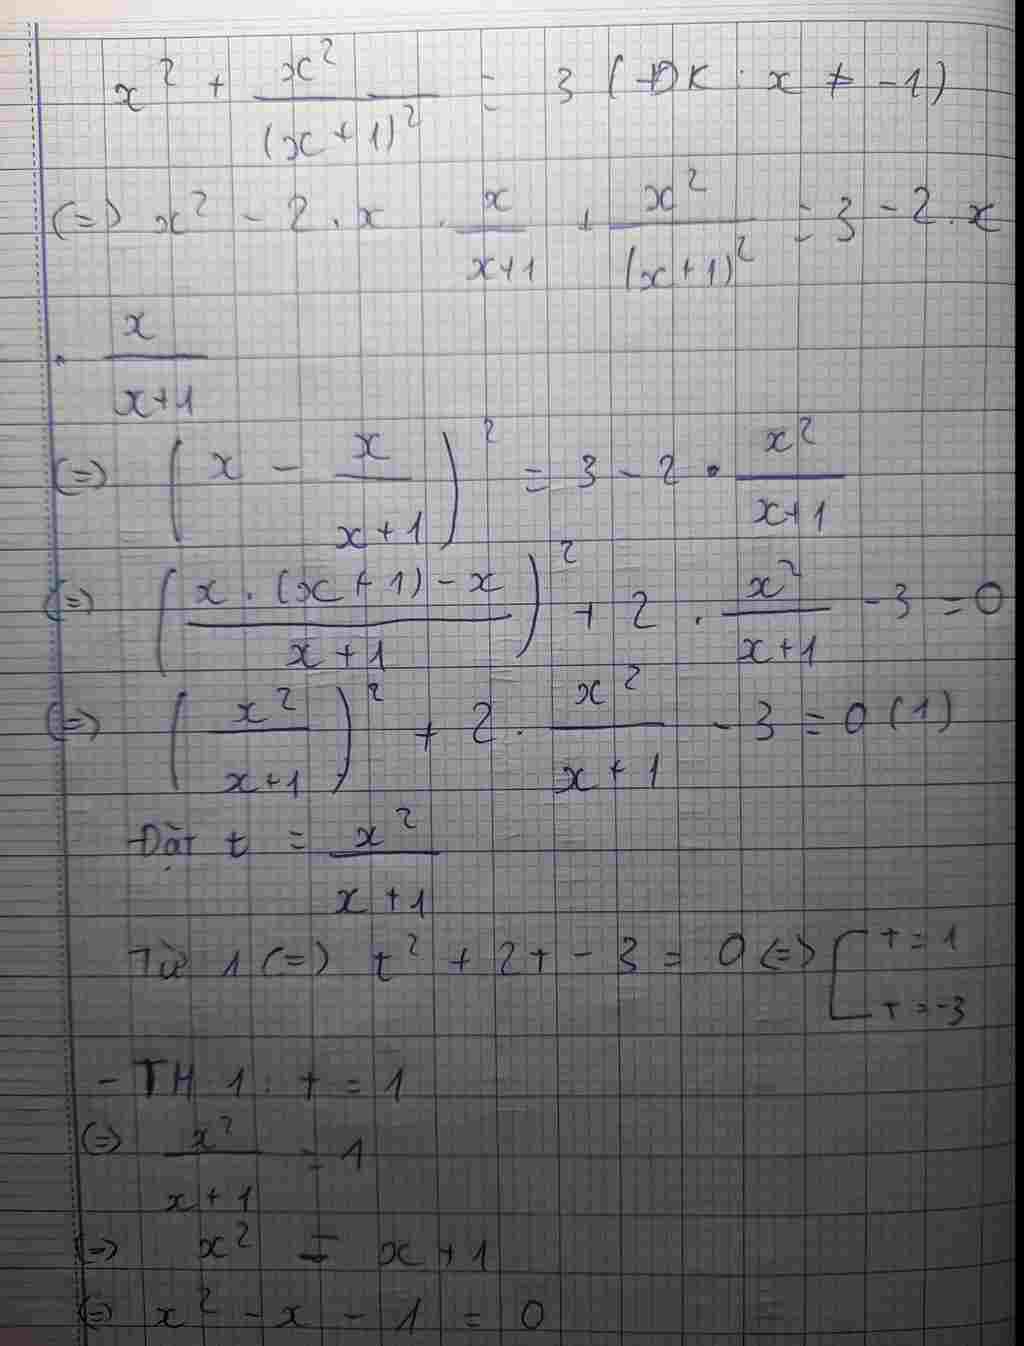 x² + x²/(x+1)² = 3 (ĐK : x ≠ -1)
(=) x² - 2 . x . x/(x+1) + x²/(x+1)² = 3 - 2 . x
. x/(x+1)
(=) (x - x/(x+1))² = 3 - 2 . x²/(x+1)
(=) ((x . (x+1) - x)/(x+1))² + 2 . x²/(x+1) - 3 = 0
(=) (x²/(x+1))² + 2 . x²/(x+1) - 3 = 0 (1)
Đặt t = x²/(x+1)
Từ 1 (=) t² + 2t - 3 = 0 (=) [ t = 1
t = -3
- TH 1 : t = 1
(=) x²/(x+1) = 1
(=) x² = x + 1
(=) x² - x - 1 = 0